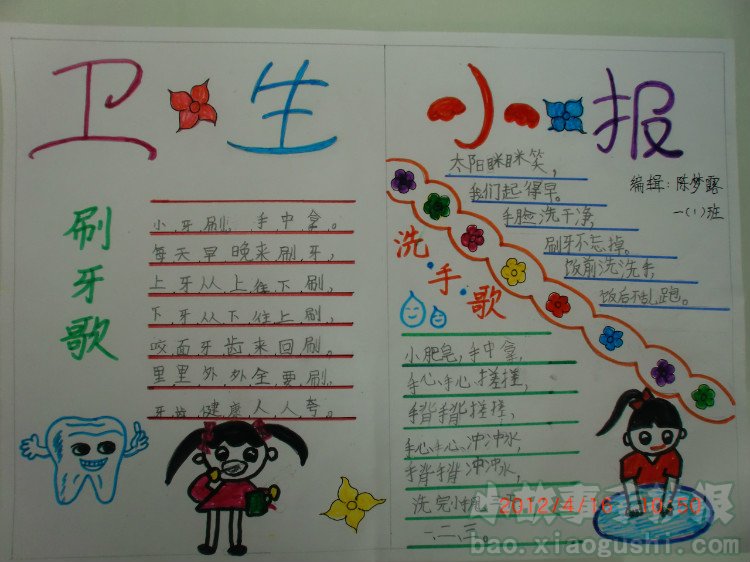 卫生小报
编辑：陈梦露
一（1）班
刷牙歌
小牙刷，手中拿。
每天早晚来刷牙，
上牙从上往下刷，
下牙从下往上刷，
咬面牙齿来回刷。
里里外外全要刷，
牙齿健康人人夸。
太阳眯眯笑，
我们起得早。
手脸洗干净，
刷牙不忘掉。
饭前洗洗手，
饭后不乱跑。
洗手歌
小肥皂，手中拿，
手心手心搓搓，
手背手背搓搓，
手心手心冲冲水，
手背手背冲冲水，
洗完小
一、二、三。
2012/4/16 10:50
小故事手抄报
bao.xiaogushi.com